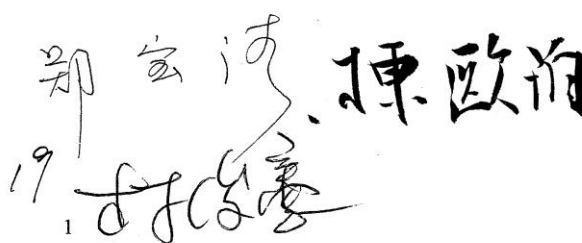 郑宝清、陳歐珀
19
1 林俊憲